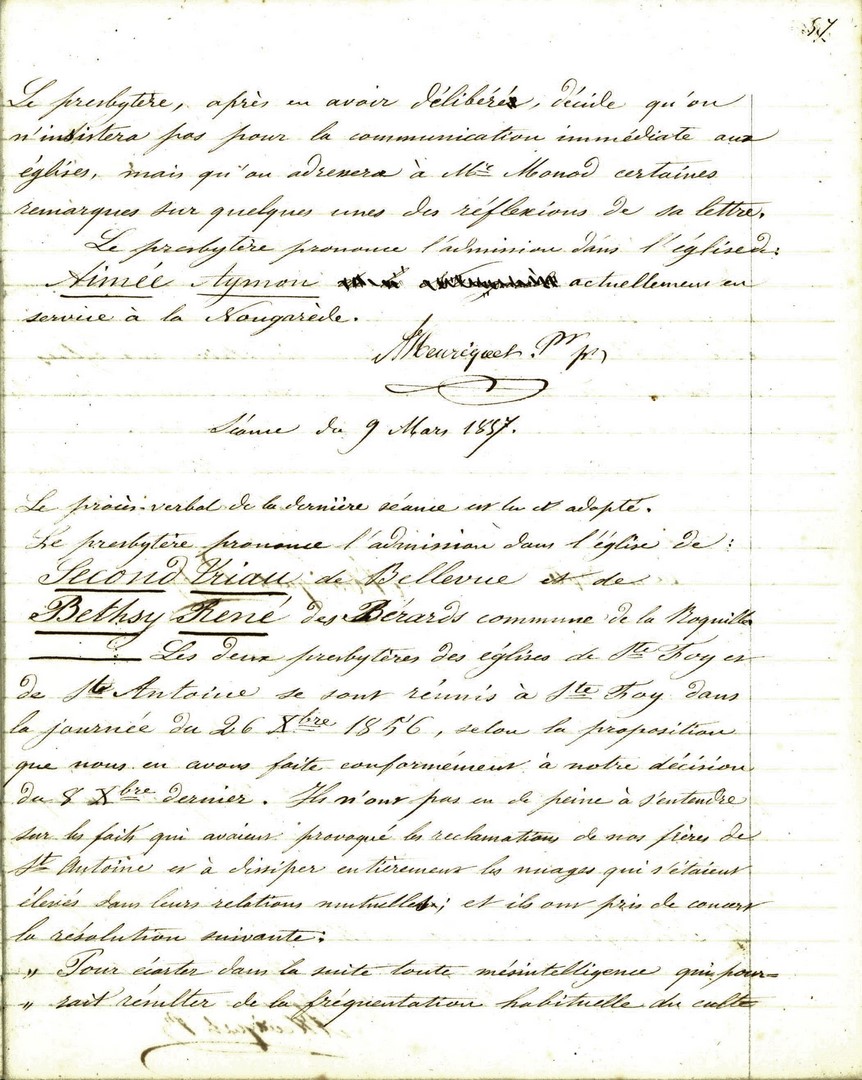 57
Le presbytère, après en avoir délibéré, décide qu'on
n'insistera pas pour la communication immédiate aux
églises, mais qu'on adressera à Mr. Monod certaines
remarques sur quelques unes des réflexions de sa lettre.
Le presbytère prononce l'admission dans l'église de:
Aimée Aymon actuellement en
service à la Nougarède.
Séance du 9 Mars 1857.
Le procès-verbal de la dernière séance est lu et adopté.
Le presbytère prononce l'admission dans l'église de:
Second Uriau de Bellevue et de
Bethsy René des Bérards commune de la Roquille
Les deux presbytères des églises de Ste Foy et
de St Antoine se sont réunis à Ste Foy dans
la journée du 26 Xbre 1856, selon la proposition
que nous en avons faite conformément à notre décision
du 8 Xbre dernier. Ils n'ont pas eu de peine à s'entendre
sur les faits qui avaient provoqué les reclamations de nos frères de
St Antoine et à dissiper entièrement les nuages qui s'étaient
élevés dans leurs relations mutuelles; et ils ont pris de concert
la résolution suivante:
" Pour écarter dans la suite toute mésintelligence qui pour=
" rait résulter de la fréquentation habituelle du culte